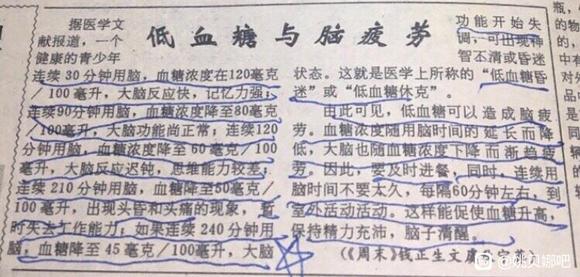 低血糖与脑疲劳
据医学文
献报道,一个
健康的青少年
连续30分钟用脑,血糖浓度在120毫克
/100毫升,大脑反应快,记忆力强;
连续90分钟用脑,血糖浓度降至80毫克
/100毫升,大脑功能尚正常;连续120
分钟用脑,血糖浓度降至60毫克/100
毫升,大脑反应迟钝,思维能力较差;
连续210分钟用脑,血糖降至50毫克/
100毫升,出现头昏和头痛的现象,暂
时失去工作能力;如果连续240分钟用
脑,血糖降至45毫克/100毫升,大脑
功能开始失
调,可出现神
智不清或昏迷
状态。这就是医学上所称的“低血糖昏
迷”或“低血糖休克”。
由此可见,低血糖可以造成脑疲
劳。血糖浓度随用脑时间的延长而降
低,大脑也随血糖浓度下降而渐趋疲
劳。因此,要及时进餐,同时,连续用
脑时间不要太久,每隔60分钟左右,到
室外活动活动。这样能促使血糖升高,
保持精力充沛,脑子清醒。
(《周末》钱正生文
瓶,
的物
的,
中有
对外
品
@姚贝娜吧